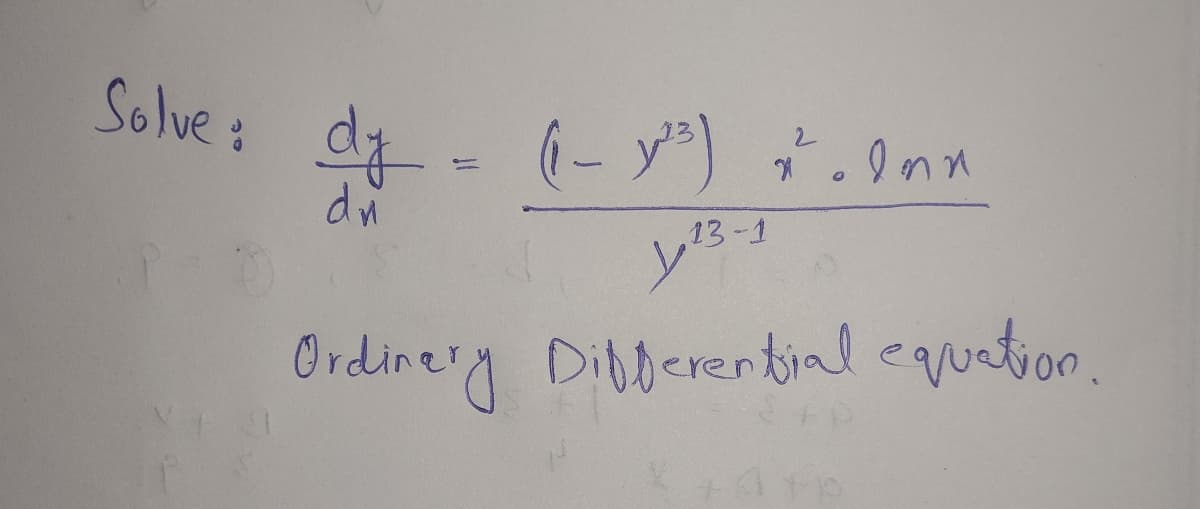 Solve : dy/dx = (1 - y^13) x^2 . ln x / y^13-1
Ordinary Differential equation.